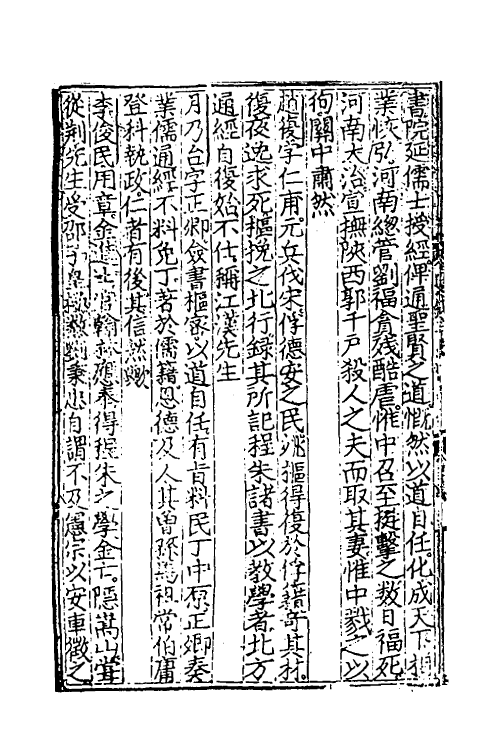 書院延儒士授經俾通聖賢之道慨然以道自任化成天下
業恢弘河南總管劉福貪殘酷虐惟中召至挺擊之數日福死
河南大治宣撫陝西郭千戶殺人之夫而取其妻惟中戮之以
徇關中肅然
趙復字仁甫元兵伐宋俘德安之民姚樞得復於俘籍奇其材
復夜逸求死樞挽之北行錄其所記程朱諸書以教學者北方
通經自復始不仕稱江漢先生
月乃合字正卿僉書樞密以道自任有旨料民丁中原正卿奏
業儒通經不料免丁著於儒籍恩德及人其曾孫馬祖常伯庸
登科執政仁者有後其信然歟
李俊民用章金進士官翰林應奉得程朱之學金亡隱嵩山嘗
從荊先生受邵子皇極數劉秉忠自謂不及憲宗以安車徵之